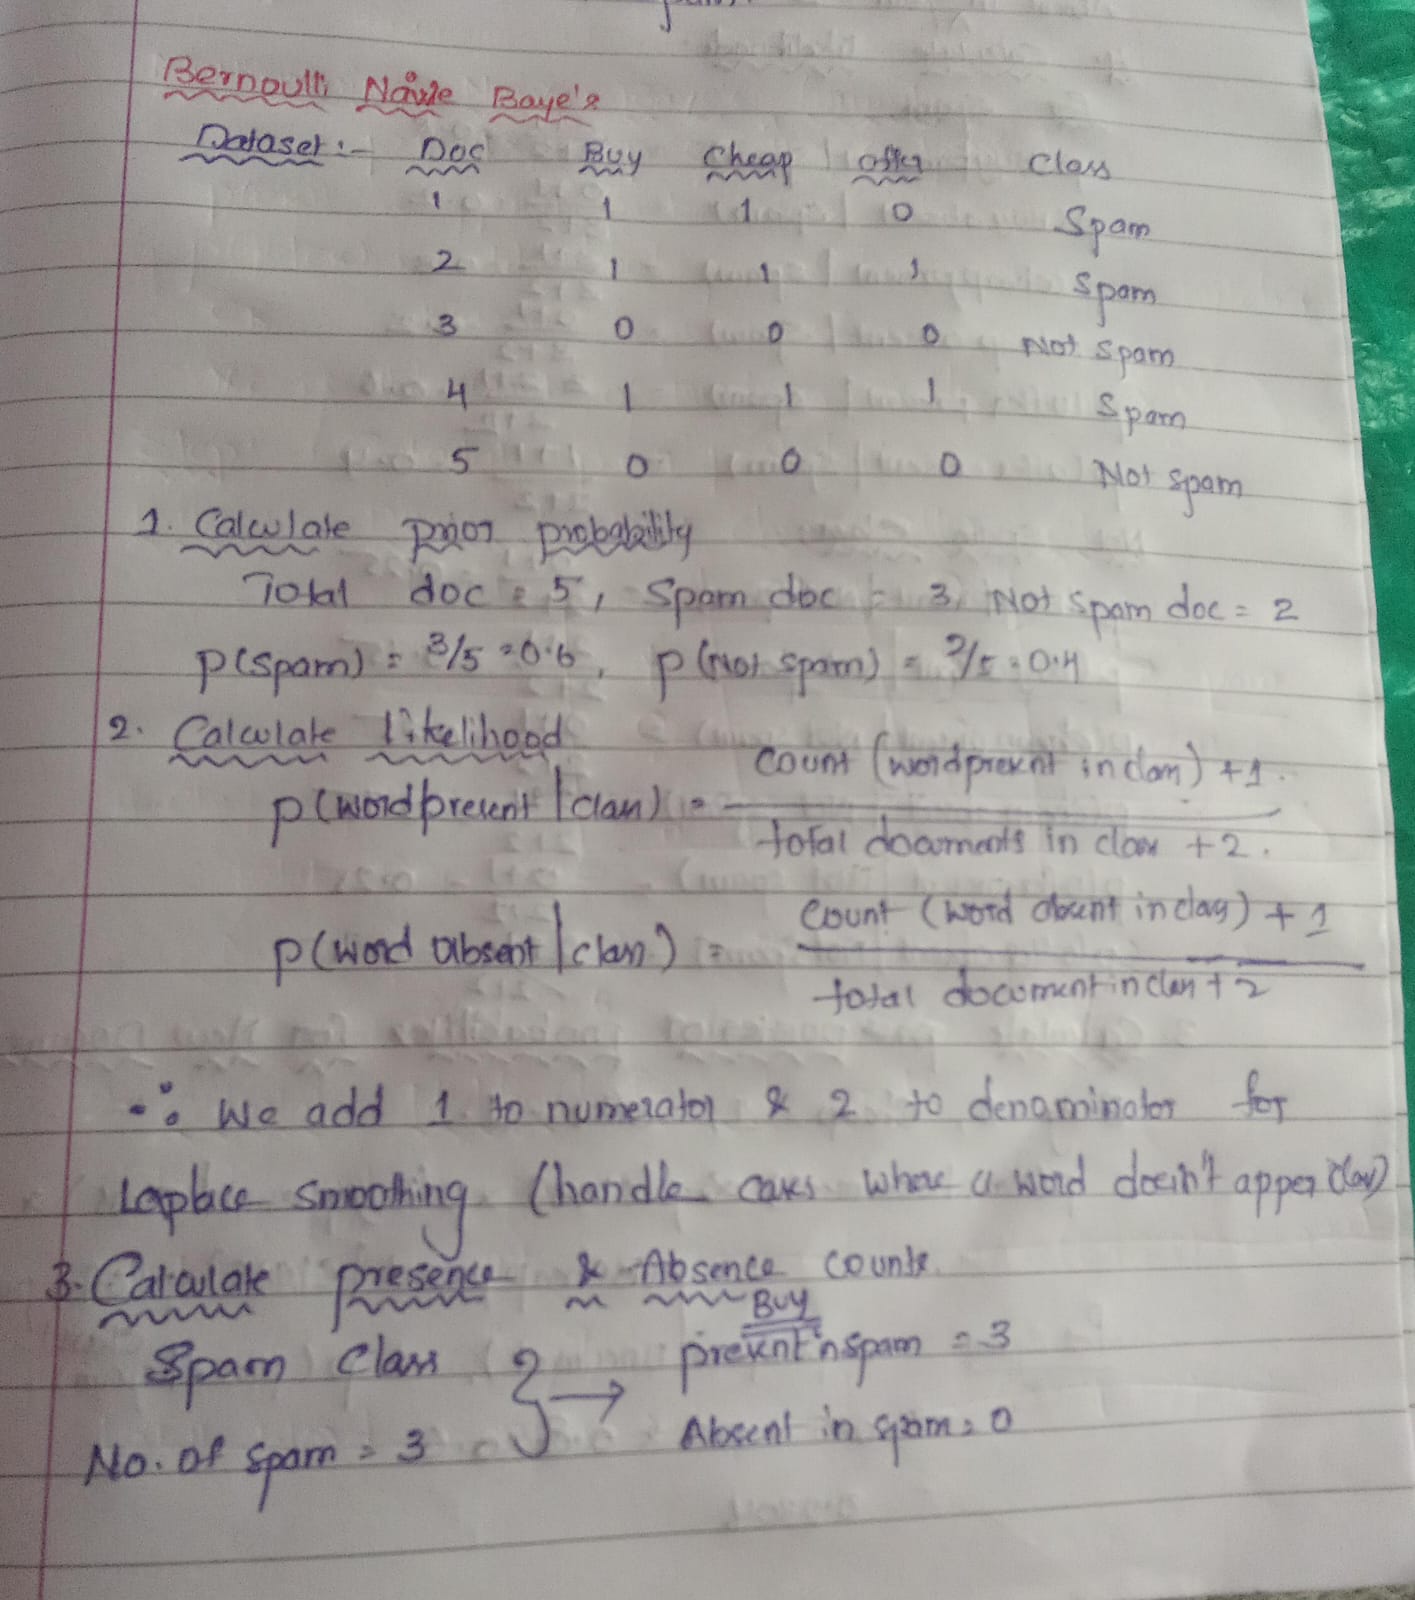 Bernoulli Naive Baye's
Dataset :- Doc Buy Cheap offer Class
1 1 1 0 Spam
2 1 1 1 Spam
3 0 0 0 Not Spam
4 1 1 1 Spam
5 0 0 0 Not Spam
1. Calculate prior probability
Total doc = 5, Spam doc = 3, Not Spam doc = 2
P(spam) = 3/5 = 0.6, P(Not spam) = 2/5 = 0.4
2. Calculate likelihood
P(word present | class) = Count (word present in class) + 1 / total documents in class + 2.
P(word absent | class) = Count (word absent in class) + 1 / total document in class + 2
∴ We add 1 to numerator & 2 to denominator for
Laplace smoothing (handle cases where a word doesn't apper class)
3. Calculate presence & Absence counts
Buy
Spam Class } → present in spam = 3
No. of spam = 3 Absent in spam = 0